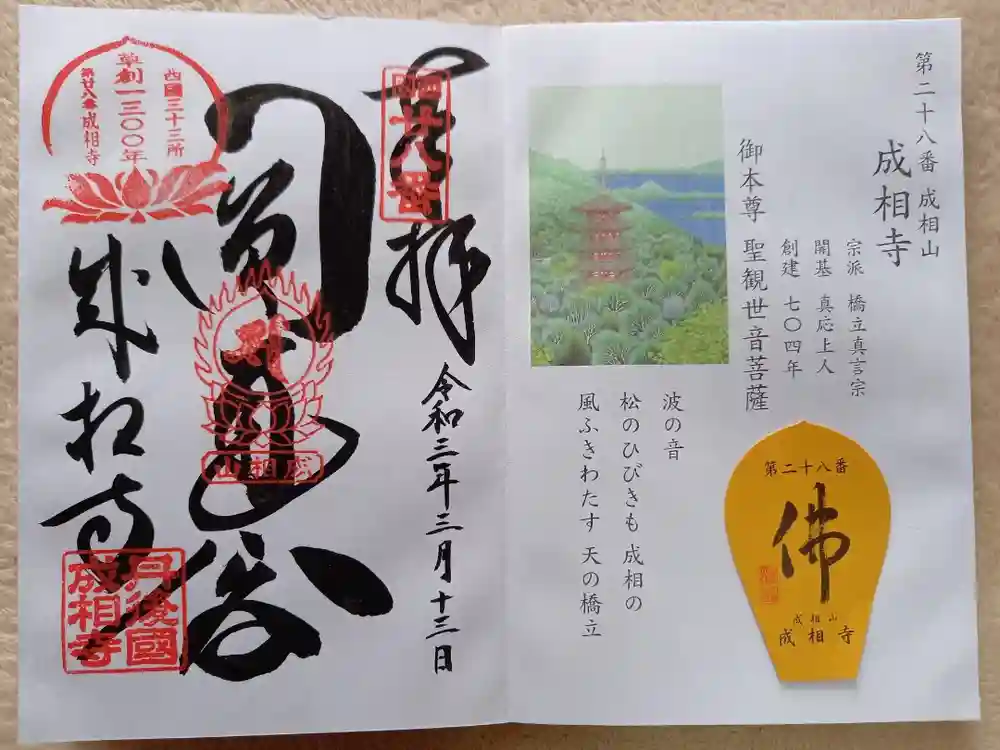 第二十八番 成相山
成相寺
宗派 橋立真言宗
開基 真応上人
創建 七〇四年
御本尊 聖観世音菩薩
波の音
松のひびきも 成相の
風ふきわたす 天の橋立
第二十八番
佛
成相山
成相寺
奉拝
西国
廿八番
令和三年三月十三日
成相山
西國三十三所
草創一三〇〇年
第廿八番 成相寺
成相寺
丹後國
成相寺